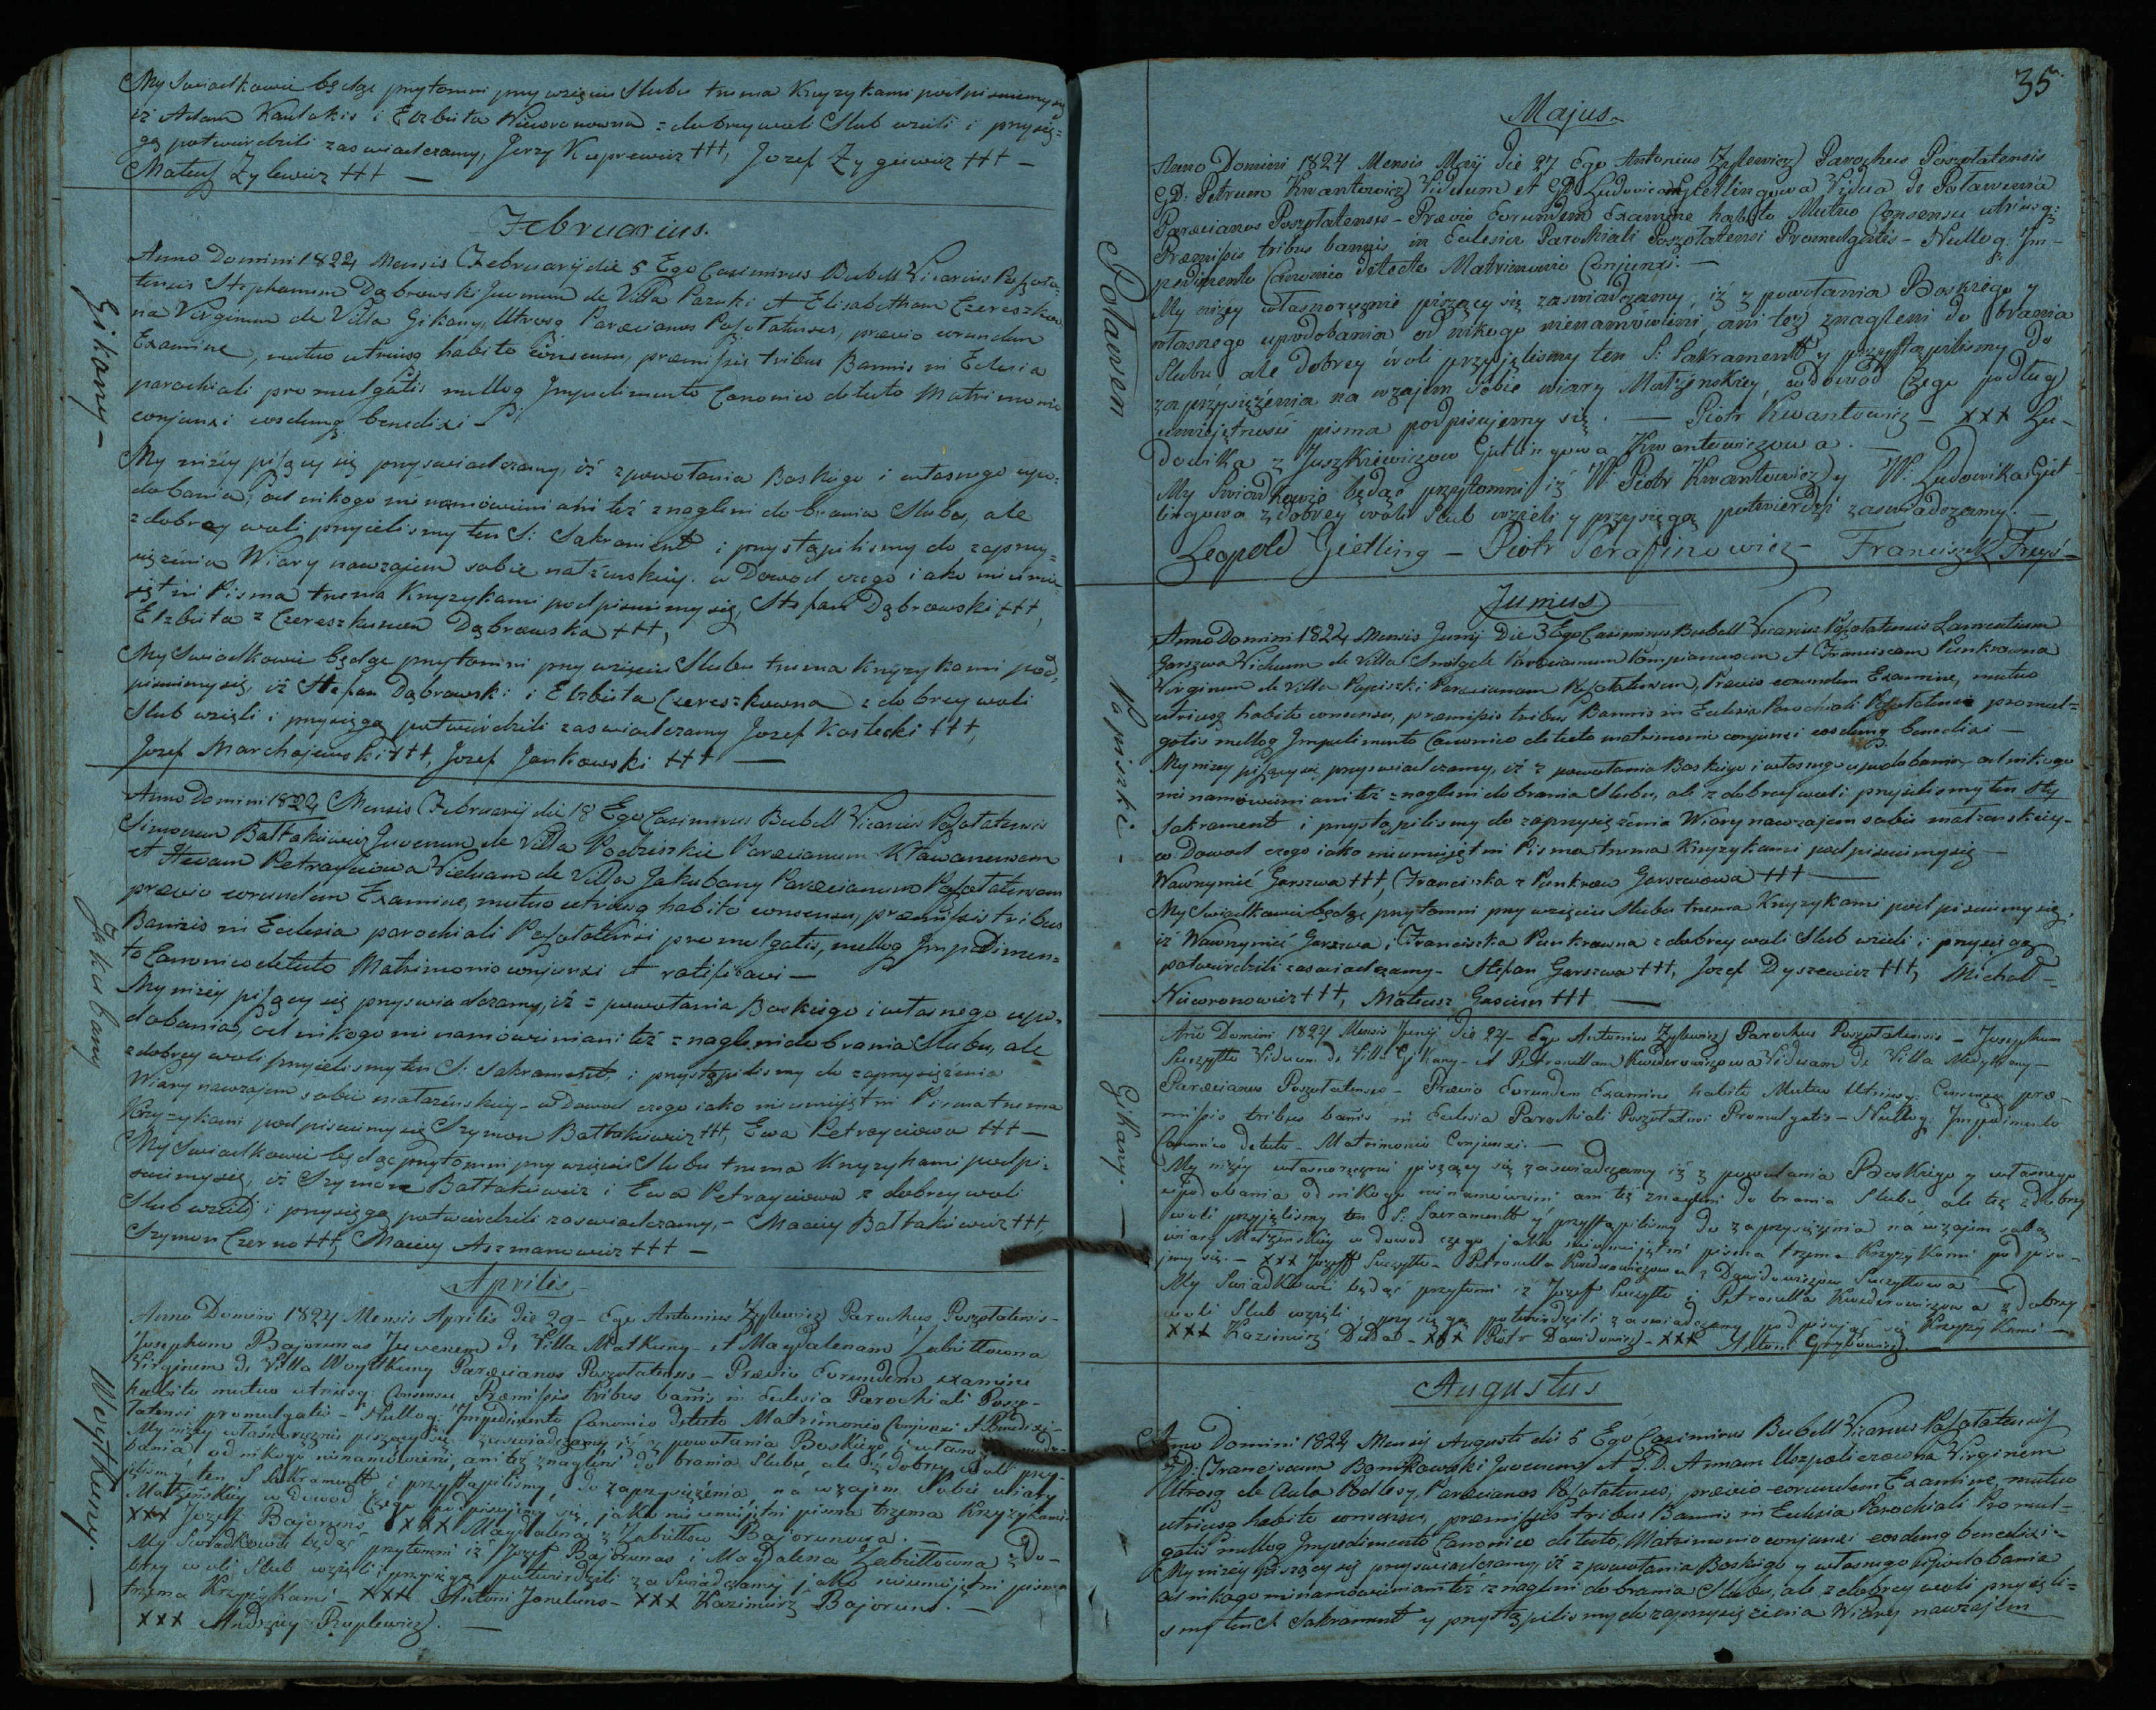 My Swiadkowie będąc przytomni przy wzięciu Slubu trzema Krzyzykami podpisuiemy się
iż Adam Kaulakis i Elzbieta Niewronowna z dobrey woli Slub wzieli i przysię=
gą potwierdzili zaswiadczamy, Jerzy Kuprewicz +++, Jozef Zygiewicz +++ —
Mateusz Zylewicz +++ —
Februarius.
Anno Domini 1824 Mensis Februarij die 5 Ego Casimirus Bubell Vicarius Poszoła-
tensis Stephanum Dąbrowski Juvenem de Villa Pazuki et Elisabetham Czereszkow-
na Virginem de Villa Gikany, Utrosq Paræcianos Poszołatenses, prævio eorundem
Examine, mutuo utriusq habito consensu, præmissis tribus Bannis in Eclesia
parochiali promulgatis nulloq Impedimento Canonico detecto Matrimonio
conjunxi eosdemq benedixi —
Gikany —
My niżey piszący się przyswiadczamy, iż z powołania Boskiego i własnego upo-
dobania, od nikogo nie namowieni ani też znagleni do brania Slubu, ale
z dobrey woli przyielismy ten S: Sakrament i przystąpilismy do zaprzy=
siężenia Wiary nawzajem sobie małżenskiey. w Dowod czego iako nieumie-
iętni Pisma trzema Krzyzykami podpisuiemy się, Stefan Dąbrowski +++,
Elzbieta z Czereszkow Dąbrowska +++,
My Swiadkowie będąc przytomni przy wzięciu Slubu trzema krzyzykami pod-
pisuiemy się, iż Stefan Dąbrowski i Elzbieta Czereszkowna z dobrey woli
Slub wzięli i przysięgą potwierdzili zaswiadczamy Jozef Kostecki +++,
Jozef Marchajewski +++, Jozef Jankowski +++ —
Anno Domini 1824 Mensis Februarij die 18 Ego Casimirus Bubell Vicarius Poszołatensis
Simonem Bałtakiewicz Juvenem de Villa Paræcianum Kławanensem
et Hevam Petrayciowa Viduam de Villa Jakubany Paræcianam Poszołatensem
prævio eorundem Examine, mutuo utriusq habito consensu, præmissis tribus
Bannis in Eclesia parochiali Poszołatensi promulgatis, nulloq Impedimen=
to Canonico detecto Matrimonio conjunxi et ratificavi —
Jakubany
My niżey piszący się przyswiadczamy, iż z powołania Boskiego i własnego upo-
dobania, od nikogo nie namowieni ani też znagleni do brania Slubu, ale
z dobrey woli przyielismy ten S: Sakrament, i przystąpilismy do zaprzysiężenia
Wiary nawzajem sobie małżenskiey — w Dowod czego iako nieumiejętni Pisma trzema
Krzyzykami podpisuiemy się Szymon Bałtakiewicz +++, Ewa Petrayciowa +++ —
My Swiadkowie będąc przytomni przy wzięciu Slubu trzema Krzyzykami podpi-
suiemy się, iż Szymon Bałtakiewicz i Ewa Petrayciowa z dobrey woli
Slub wzieli i przysięgą potwierdzili zaswiadczamy, — Maciey Bałtakiewicz +++,
Szymon Czerno +++, Maciey Aszmanowicz +++ —
Aprilis
Anno Domini 1824 Mensis Aprilis Die 29 — Ego Antonius Zylewicz Parochus Poszołatensis —
Josephum Bajorunas Juvenem de Villa Matkuny — et Magdalenam Zabiełłowna
Virginem de Villa Woytkuny Paræcianos Poszołatenses — Prævio Eorundem examine
habito mutuo utriusq. Consensu, Præmissis tribus bannis in Eclesia Parochiali Poszo-
łatensi promulgatis — Nulloq Impedimento Canonico detecto Matrimonio Conjunxi et Benedixi —
Woytkuny. —
My niżey własnoręcznie piszący się zaswiadczamy iż z powołania Boskiego i własnego upodo-
bania od nikogo nienamowieni, ani też znagleni do brania Slubu, ale z dobrey woli przy-
jęlismy ten S Sakrament i przystąpilismy do zaprzysiężenia na wzajem sobie wiary
Małżenskiey w dowod Czego podpisujemy się, jako nie umiejętni pisma trzema Krzyżykami
XXX Jozef Bajoruns, XXX Magdalena z Zabiełłow Bajorunowa. —
My Swiadkowie będąc przytomni iż Jozef Bajorunas i Magdalena Zabiełłowna z Do-
brey woli Slub wzięli i przysięgą potwierdzili zaswiadczamy jako nieumiejętni pisma
trzema Krzyżykami — XXX Antoni Joneluns — XXX Kazimierz Bajoruns. —
XXX Andrzey Ruplewicz. —
35
Majus
Anno Domini 1824 Mensis Maij Die 27 Ego Antonius Zylewicz Parochus Poszołatensis
GD: Petrum Kwantowicz Viduum et GD Ludovicam Gietlingowa Vidua de Poławenia
Paræcianos Poszołatenses — Prævio Eorundem Examine habito Mutuo Consensu utriusq:
Præmissis tribus bannis in Eclesia Parochiali Poszołatensi Promulgatis — Nulloq. Im-
pedimento Canonico detecto Matrimonio Conjunxi. —
Poławen
My niżey własnoręcznie piszący się zaswiadczamy, iż z powołania Boskiego y
własnego upodobania od nikogo nienamowieni, ani też znagleni do brania
Slubu ale dobrey woli przyjęlismy ten S: Sakrament y przystąpilismy do
zaprzysiężenia na wzajem sobie wiary Małżenskiey, w dowod Czego podług
umiejętnosci pisma podpisujemy się. — Piotr Kwantowicz — XXX Lu-
dowika z Juszkiewiczow Gietlingowa Kwantowiczowa. —
My Swiadkowie będąc przytomni iż W. Piotr Kwantowicz y W: Ludowika Giet-
lingowa z dobrey woli Slub wzieli y przysięgą potwierdzi zaswiadczamy. —
Leopold Gietling — Piotr Serafinowicz — Franciszek —
Junius
Anno Domini 1824 Mensis Junij Die 3 Ego Casimirus Bubell Vicarius Poszołatensis Laurentium
Garszwa Viduum de Villa Smilgele Paræcianum Pompianensem et Franciscam Punkrowna
Virginem de Villa Papiszki Paræcianam Poszołatensem, Prævio eorundem Examine, mutuo
utriusq habito consensu, præmissis tribus Bannis in Eclesia Parochiali Poszołatensi promul=
gatis nulloq Impedimento Canonico detecto matrimonio conjunxi eosdemq benedixi —
Papiszki —
My niżey piszący się przyswiadczamy, iż z powołania Boskiego i własnego upodobania, od nikogo
nie namowieni ani też znagleni do brania Slubu, ale z dobrey woli przyielismy ten Sty
Sakrament i przystąpilismy do zaprzysiężenia Wiary nawzajem sobie małżenskiey —
w Dowod czego iako nieumiejętni Pisma trzema Krzyzykami podpisuiemy się —
Wawrzyniec Garszwa +++, Franciszka z Punkrow Garszwowa +++ —
My Swiadkowie będąc przytomni przy wzięciu Slubu trzema Krzyzykami podpisuiemy się,
iż Wawrzyniec Garszwa i Franciszka Punkrowna z dobrey woli Slub wzieli i przysięgą
potwierdzili zaswiadczamy — Stefan Garszwa +++, Jozef Dyszewicz +++, Michał
Niewronowicz +++, Mateusz Gasiun +++ —
Ano Domini 1824 Mensis Junij Die 24 — Ego Antonius Zylewicz Parochus Poszołatensis — Josephum
Suczyłło Viduum de Villa Gikany — et Petronellam Kwederowiczowa Viduam de Villa Medykany —
Paræcianos Poszołatenses — Prævio Eorundem Examine habito Mutuo Utriusq. Consensu præ-
missis tribus bannis in Eclesia Parochiali Poszołatensi Promulgatis — Nulloq. Impedimento
Canonico detecto — Matrimonio Conjunxi. —
Gikany. —
My niżey własnoręczni piszący się zaswiadczamy iż z powołania Boskiego y własnego
upodobania od nikogo nienamowieni ani też znagleni do brania Slubu, ale też z dobrey
woli przyjęlismy ten S: Sacrament y przystąpilismy do zaprzysiężenia na wzajem sobą
wiary Małżenskiey w dowod czego jako nieumiejętni pisma trzema Krzyżykami podpisu-
jemy się. — XXX Jozeff Suczyłło — Petronella Kwederowiczowa z Dawidowiczow Suczyłłowa —
My Swiadkowie będąc przytomni iż Jozef Suczyłło i Petronella Kwederowiczowa z dobrey
woli Slub wzieli i przysięgą potwierdzili zaswiadczamy podpisując się Krzyżykami —
XXX Kazimierz Dudas — XXX Piotr Dawidowicz — XXX Antoni Grybowicz. —
Augustus
Anno Domini 1824 Mensis Augusti die 5 Ego Casimirus Bubell Vicarius Poszołatensis
GD: Franciscum Bonikowski Juvenem et G.D. Annam Uszpoliczowna Virginem
Utrosq de Aula Podlesy, Paræcianos Poszołatenses, prævio eorundem Examine, mutuo
utriusq habito consensu, præmissis tribus Bannis in Eclesia Parochiali Promul-
gatis nulloq Impedimento Canonico detecto, Matrimonio conjunxi eosdemq benedixi —
My niżey piszący się przyswiadczamy, iż z powołania Boskiego y własnego Upodobania
od nikogo nienamowieni ani też iznagleni do brania Slubu, ale z dobrey woli przyięli=
smy ten S Sakrament y przystąpilismy do zaprzysiężenia Wiary nawzajem